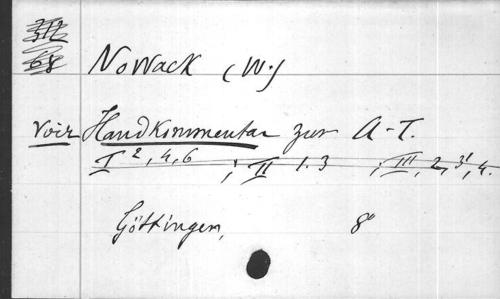 312
68
Nowack (W.)
voir Handkommentar zur A-T.
I 2, 4, 6 ; II 1. 3 ; III, 2, 3', 4.
Göttingen, 8°